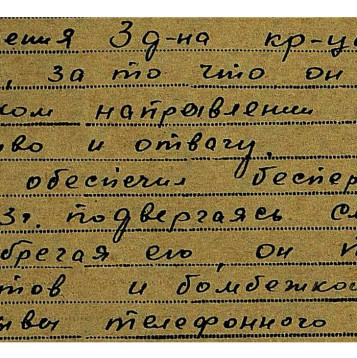 ения 3 д-на кр-ца
, за то что он
ком направлении
во и отвагу.
обеспечил беспер
3г. подвергаясь с
брегая его, он
тов и бомбежкой
тви телефонного